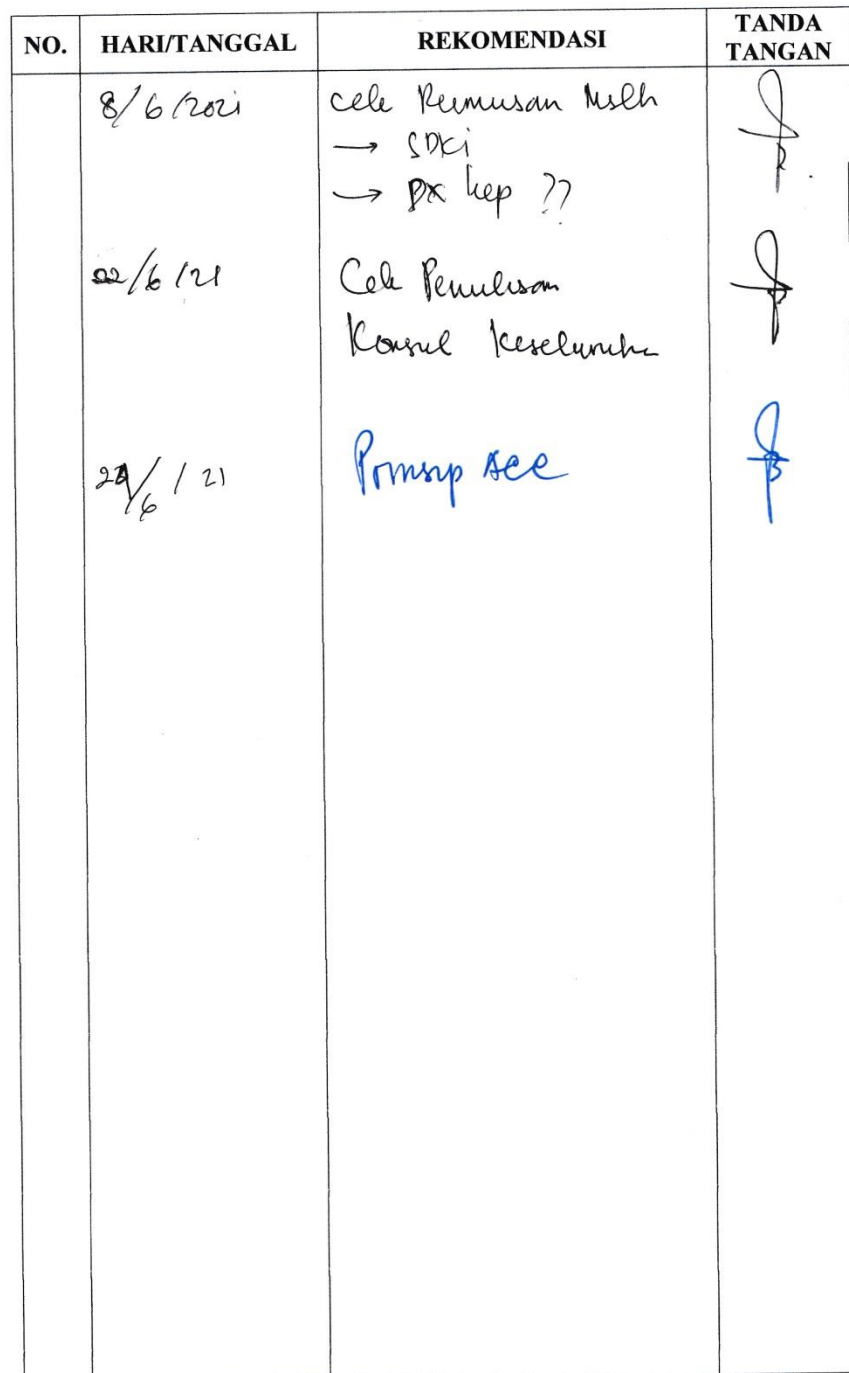 NO. HARI/TANGGAL REKOMENDASI TANDA TANGAN
8/6/2021 cek Rumusan Mslh
→ SDKI
→ Dx kep ??
22/6/21 Cek Penulisan
Konsul Keseluruhan
/6/21 Prinsip Acc